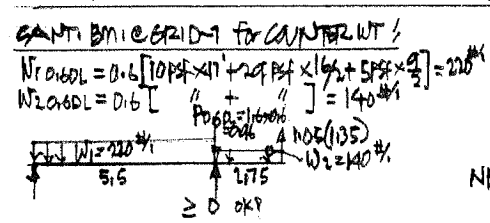 CANTI BM @ GRID-7 for COUNTER WT
W1 0.6DL = 0.6 [10 psf x 17' + 29 psf x 16/2 + 5 psf x 9/2] = 220 #/'
W2 0.6DL = 0.6 [ " + " ] = 140 #/'
P0.6DL = 1.6x0.6
= 0.96
W1 = 220 #/'
1.05 (1.35)
W2 = 140 #/'
5.5
2.75
≥ 0 OK